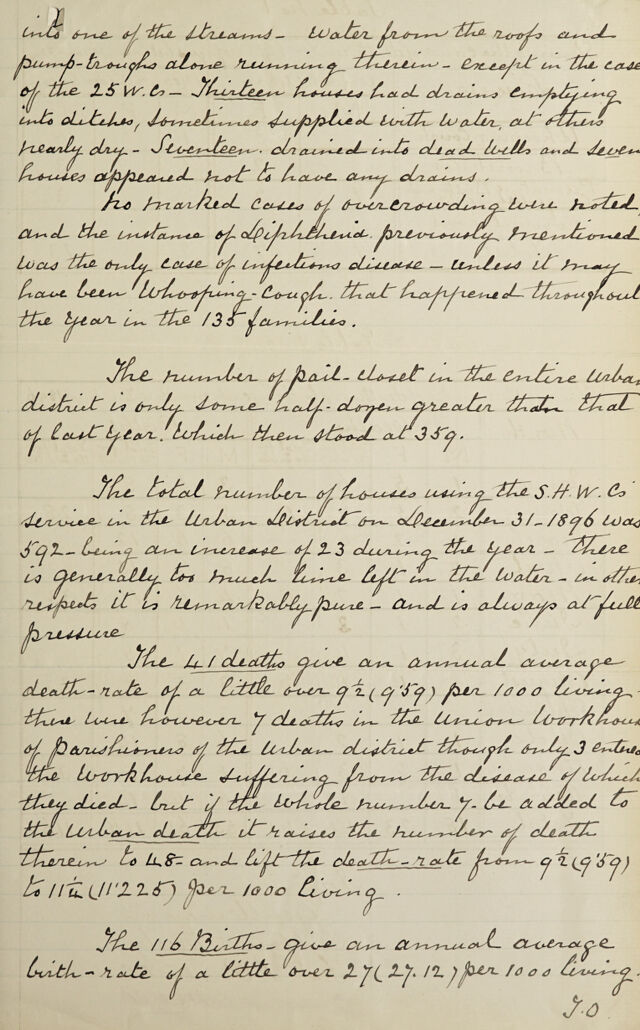 into one of the streams - Water from the roofs and
pump-troughs alone running therein - except in the case
of the 25 W.Cs - Thirteen houses had drains emptying
into ditches, sometimes supplied with water, at others
nearly dry - Seventeen drained into dead Wells and seven
houses appeared not to have any drains.
No marked cases of overcrowding were noted
and the instance of Diphtheria previously mentioned
was the only case of infectious disease - unless it may
have been Whooping-Cough that happened throughout
the year in the 135 families.
The number of pail-closet in the entire Urban
district is only some half-dozen greater than that
of last year. Which then stood at 359.
The total number of houses using the S.H.W.Cs
service in the Urban District on December 31-1896 was
592 - being an increase of 23 during the year - there
is generally too much lime left in the water - in other
respects it is remarkably pure - and is always at full
pressure
The 41 deaths give an annual average
death-rate of a little over 9½ (9.59) per 1000 living -
there were however 7 deaths in the Union Workhouse
of Parishioners of the Urban district though only 3 entered
the Workhouse suffering from the disease of which
they died - but if the whole number 7 - be added to
the Urban death it raises the number of death
therein to 48 - and lift the death-rate from 9½ (9.59)
to 11¼ (11.225) per 1000 living.
The 116 Births - give an annual average
birth-rate of a little over 27 (27.12) per 1000 living.
T.O